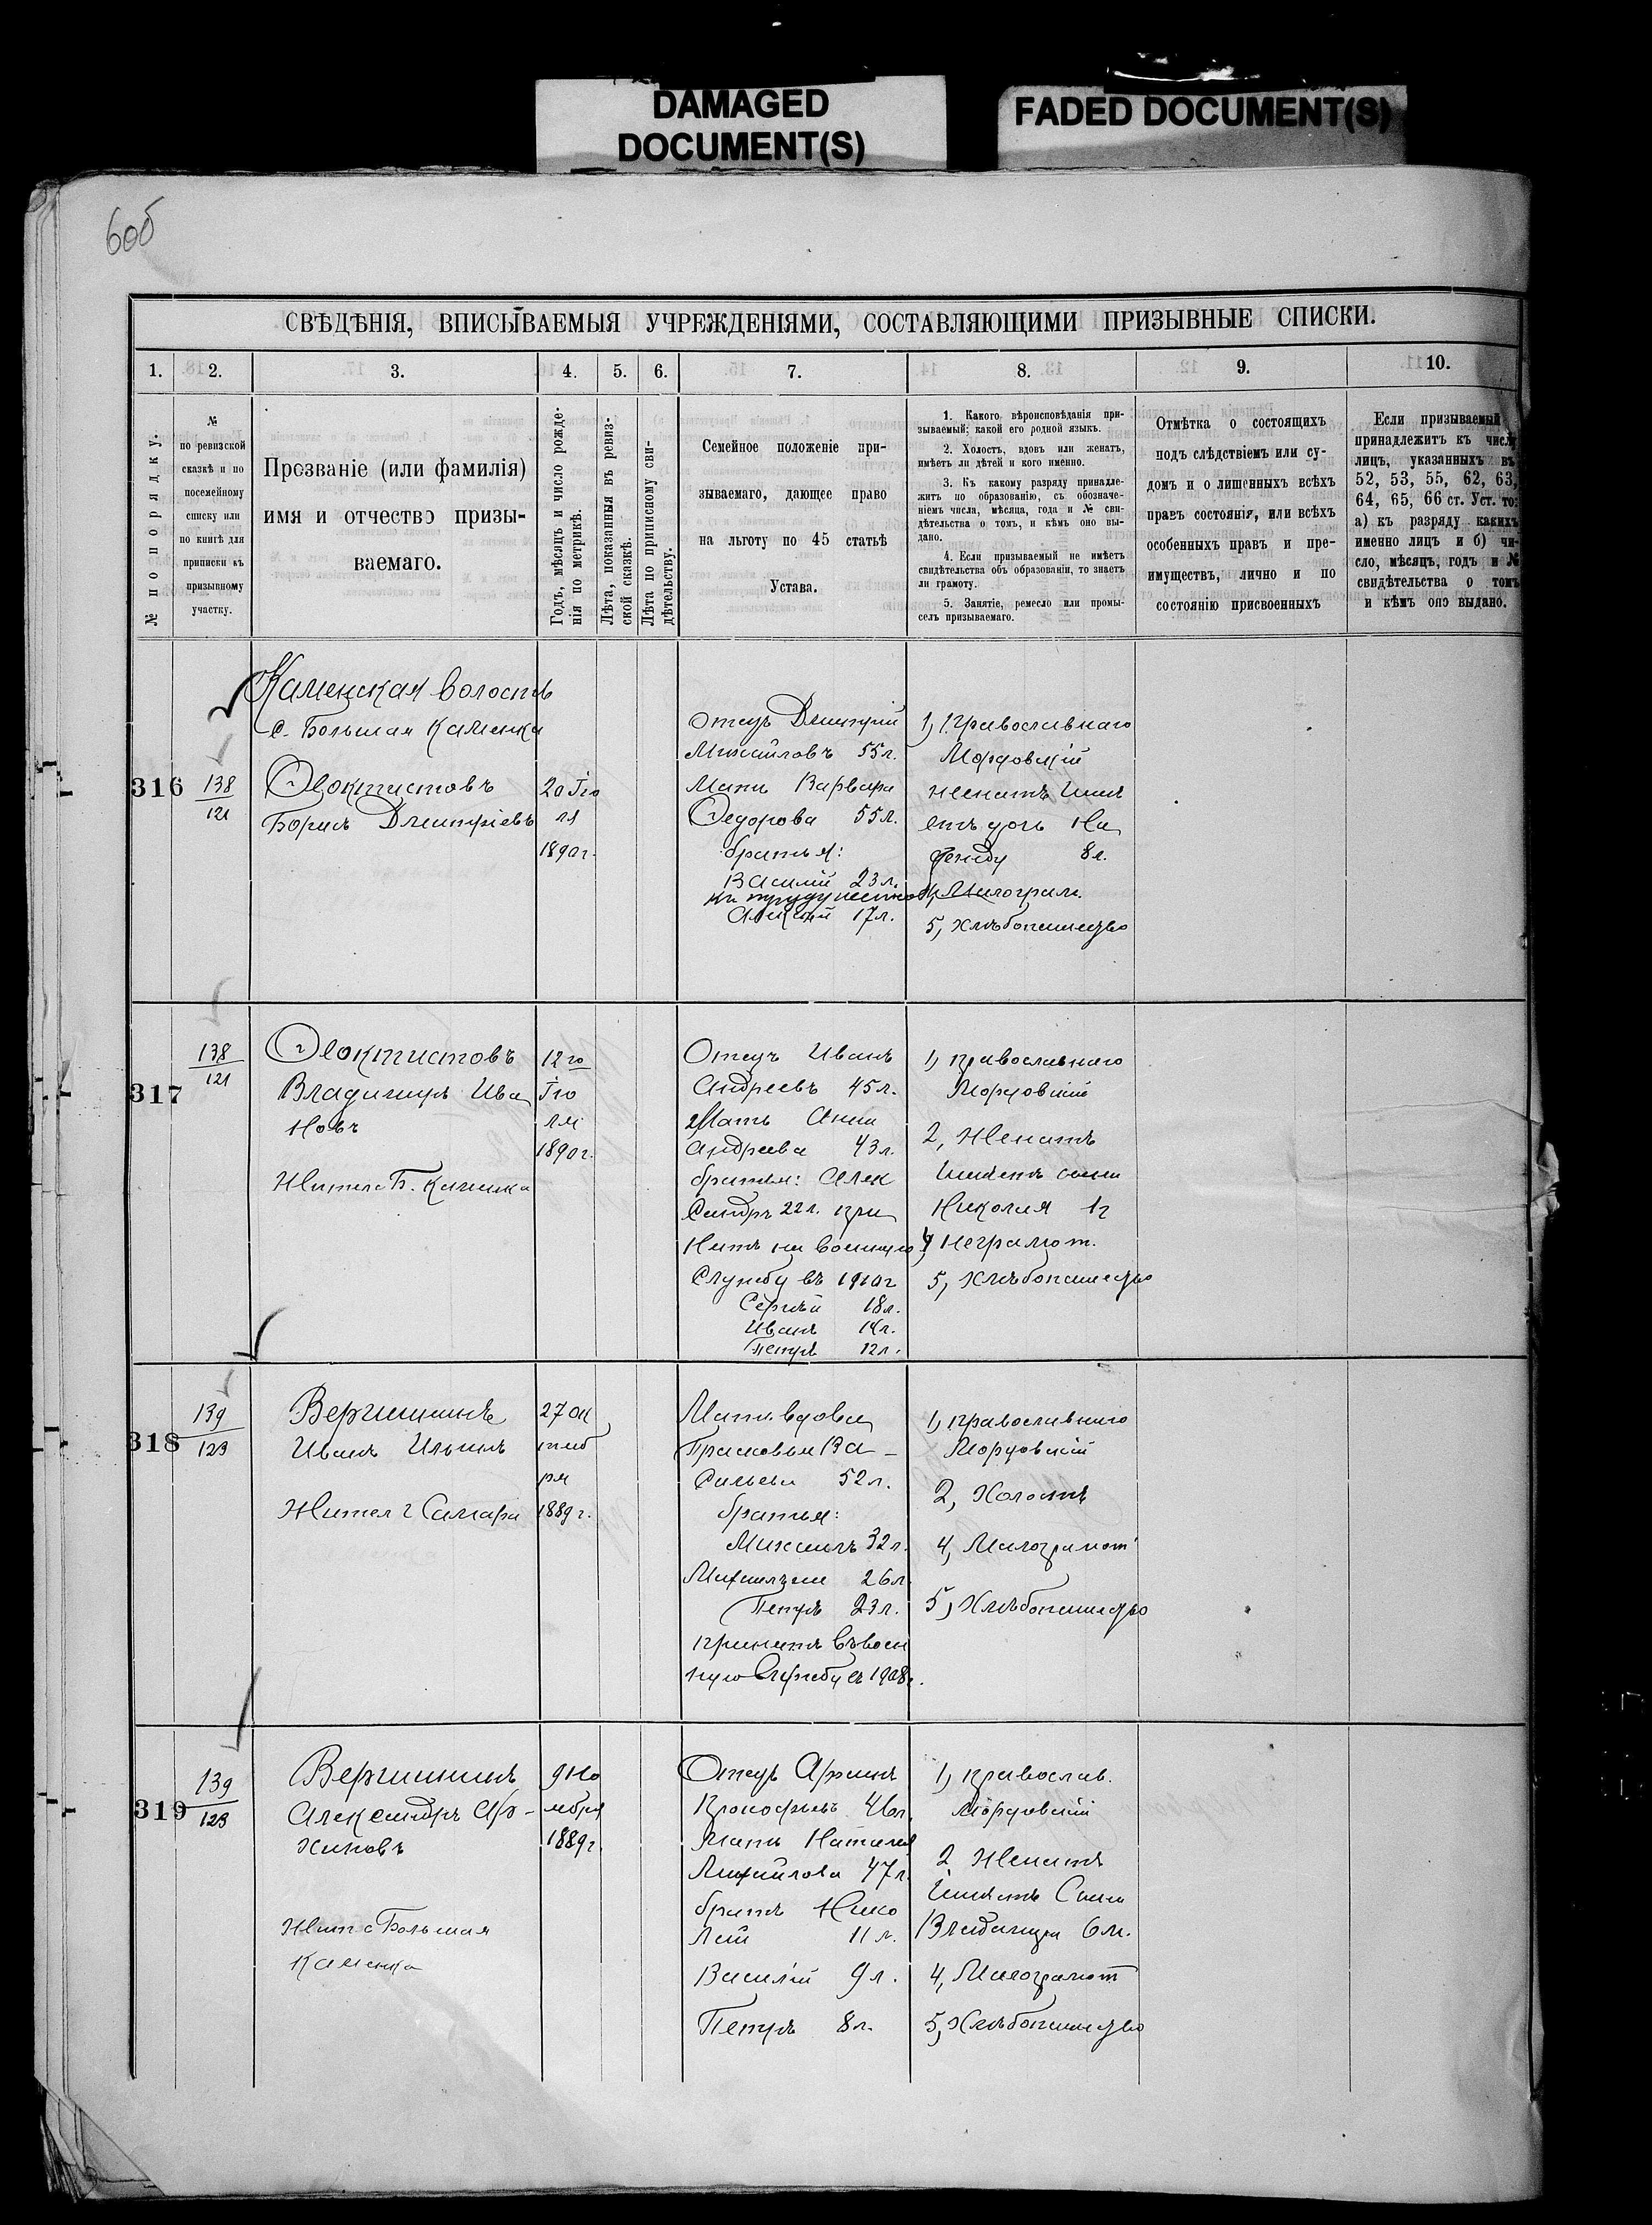 DAMAGED
DOCUMENT(S)
FADED DOCUMENT(S)
60б
СВѢДѢНІЯ, ВПИСЫВАЕМЫЯ УЧРЕЖДЕНІЯМИ, СОСТАВЛЯЮЩИМИ ПРИЗЫВНЫЕ СПИСКИ.
1.
2.
3.
4.
5.
6.
7.
8.
9.
10.
№ по порядку.
№
по ревизской
сказкѣ и по
посемейному
списку или
по книгѣ для
приписки къ
призывному
участку.
Прозваніе (или фамилія)
имя и отчество призы-
ваемаго.
Годъ, мѣсяцъ и число рожде-
нія по метрикѣ.
Лѣта, показанныя въ ревиз-
ской сказкѣ.
Лѣта по приписному сви-
дѣтельству.
Семейное положеніе при-
зываемаго, дающее право
на льготу по 45 статьѣ
Устава.
1. Какого вѣроисповѣданія при-
зываемый; какой его родной языкъ.
2. Холостъ, вдовъ или женатъ,
имѣетъ ли дѣтей и кого именно.
3. Къ какому разряду принадле-
житъ по образованію, съ обозначе-
ніемъ числа, мѣсяца, года и № сви-
дѣтельства о томъ, и кѣмъ оно вы-
дано.
4. Если призываемый не имѣетъ
свидѣтельства объ образованіи, то знаетъ
ли грамоту.
5. Занятіе, ремесло или промы-
селъ призываемаго.
Отмѣтка о состоящихъ
подъ слѣдствіемъ или су-
домъ и о лишенныхъ всѣхъ
правъ состоянія, или всѣхъ
особенныхъ правъ и пре-
имуществъ, лично и по
состоянію присвоенныхъ
Если призываемый
принадлежитъ къ числу
лицъ, указанныхъ въ
52, 53, 55, 62, 63,
64, 65, 66 ст. Уст. то:
а) къ разряду какихъ
именно лицъ и б) чи-
сло, мѣсяцъ, годъ и №
свидѣтельства о томъ
и кѣмъ оно выдано.
Каменская волость
с. Большая Каменка
316
138
121
Ѳеоктистовъ
Борисъ Дмитріевъ
20 Ію
ля
1890г.
Отецъ Дмитрій
Михайловъ 55л.
Мать Варвара
Ѳедорова 55л.
братья:
Василій 23л.
Алексѣй 17л.
1, Православнаго
Мордовскій
женатъ имѣ
етъ дочь
8л.
4, Малограм.
5, Хлѣбопашество
317
138
121
Ѳеоктистовъ
Владиміръ Ива
новъ
Жител с Б. Каменка
12го
Ію
ля
1890г.
Отецъ Иванъ
Андреевъ 45л.
Мать Анна
Андреева 43л.
братья: Алек
сандръ 22л. при
нятъ на военную
службу въ 1910г
Сергѣй 18л.
Иванъ 14л.
Петръ 12л.
1, православнаго
Мордовскій
2, Женатъ
имѣетъ сына
Николая 1г
4, неграмот.
5, Хлѣбопашество
318
139
123
Вершининъ
Иванъ Ильинъ
Жител г Самары
27 Ок
тяб
ря
1889г.
Мать вдова
Прасковья Ва-
сильева 52л.
братья:
Михаилъ 32л.
26л.
Петръ 23л.
принятъ въ воен
ную службу въ 1908г.
1, православнаго
Мордовскій
2, Холостъ
4, Малограмот
5, Хлѣбопашество
319
139
123
Вершининъ
Александръ Ар-
хиповъ
Жит с Большая
Каменка
9 Но
ября
1889г.
Отецъ Архипъ
Прокофьевъ 46л.
Мать Наталья
Михайлова 47л.
братъ Нико
лай 11л.
Василій 9л.
Петръ 8л.
1, православ.
Мордовскій
2 Женатъ
Имѣетъ Сына
Владиміра 6м.
4, Малограмот
5, Хлѣбопашество